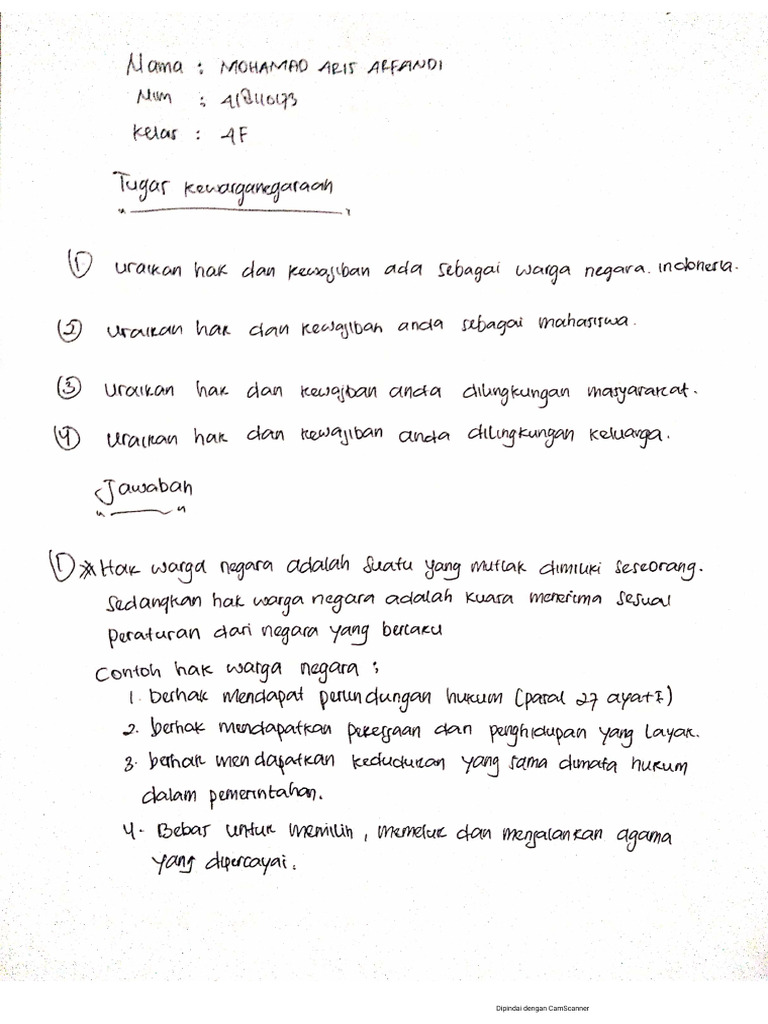 Nama : MOHAMAD ARIS ARFANDI
Nim :
Kelas : 4F
Tugas Kewarganegaraan
① Uraikan hak dan kewajiban ada sebagai warga negara. Indonesia.
② Uraikan hak dan kewajiban anda sebagai mahasiswa.
③ Uraikan hak dan kewajiban anda dilingkungan masyarakat.
④ Uraikan hak dan kewajiban anda dilingkungan keluarga.
Jawaban
① * Hak warga negara adalah suatu yang mutlak dimiliki seseorang.
Sedangkan hak warga negara adalah kuasa menerima sesuai
peraturan dari negara yang berlaku
Contoh hak warga negara :
1. berhak mendapat perlindungan hukum (pasal 27 ayat 1)
2. berhak mendapatkan pekerjaan dan penghidupan yang layak.
3. berhak mendapatkan kedudukan yang sama dimata hukum
dalam pemerintahan.
4. Bebas untuk memilih, memeluk dan menjalankan agama
yang dipercayai.
Dipindai dengan CamScanner